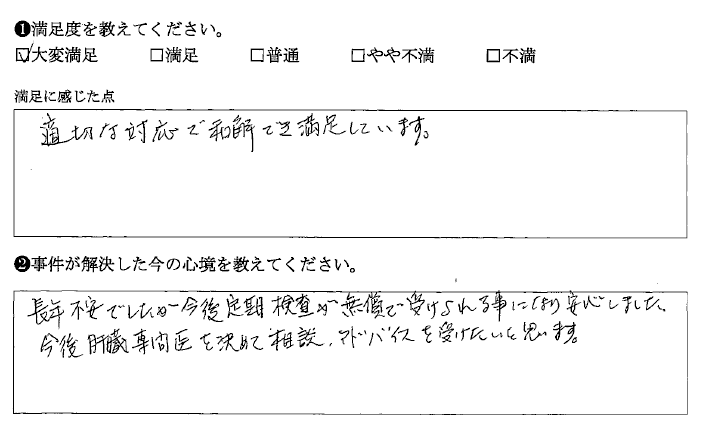 ❶満足度を教えてください。
☑大変満足 □満足 □普通 □やや不満 □不満
満足に感じた点
適切な対応で和解でき満足しています。
❷事件が解決した今の心境を教えてください。
長年不安でしたが今後定期検査が無償で受けられる事になり安心しました。
今後肝臓専門医を決めて相談、アドバイスを受けたいと思います。